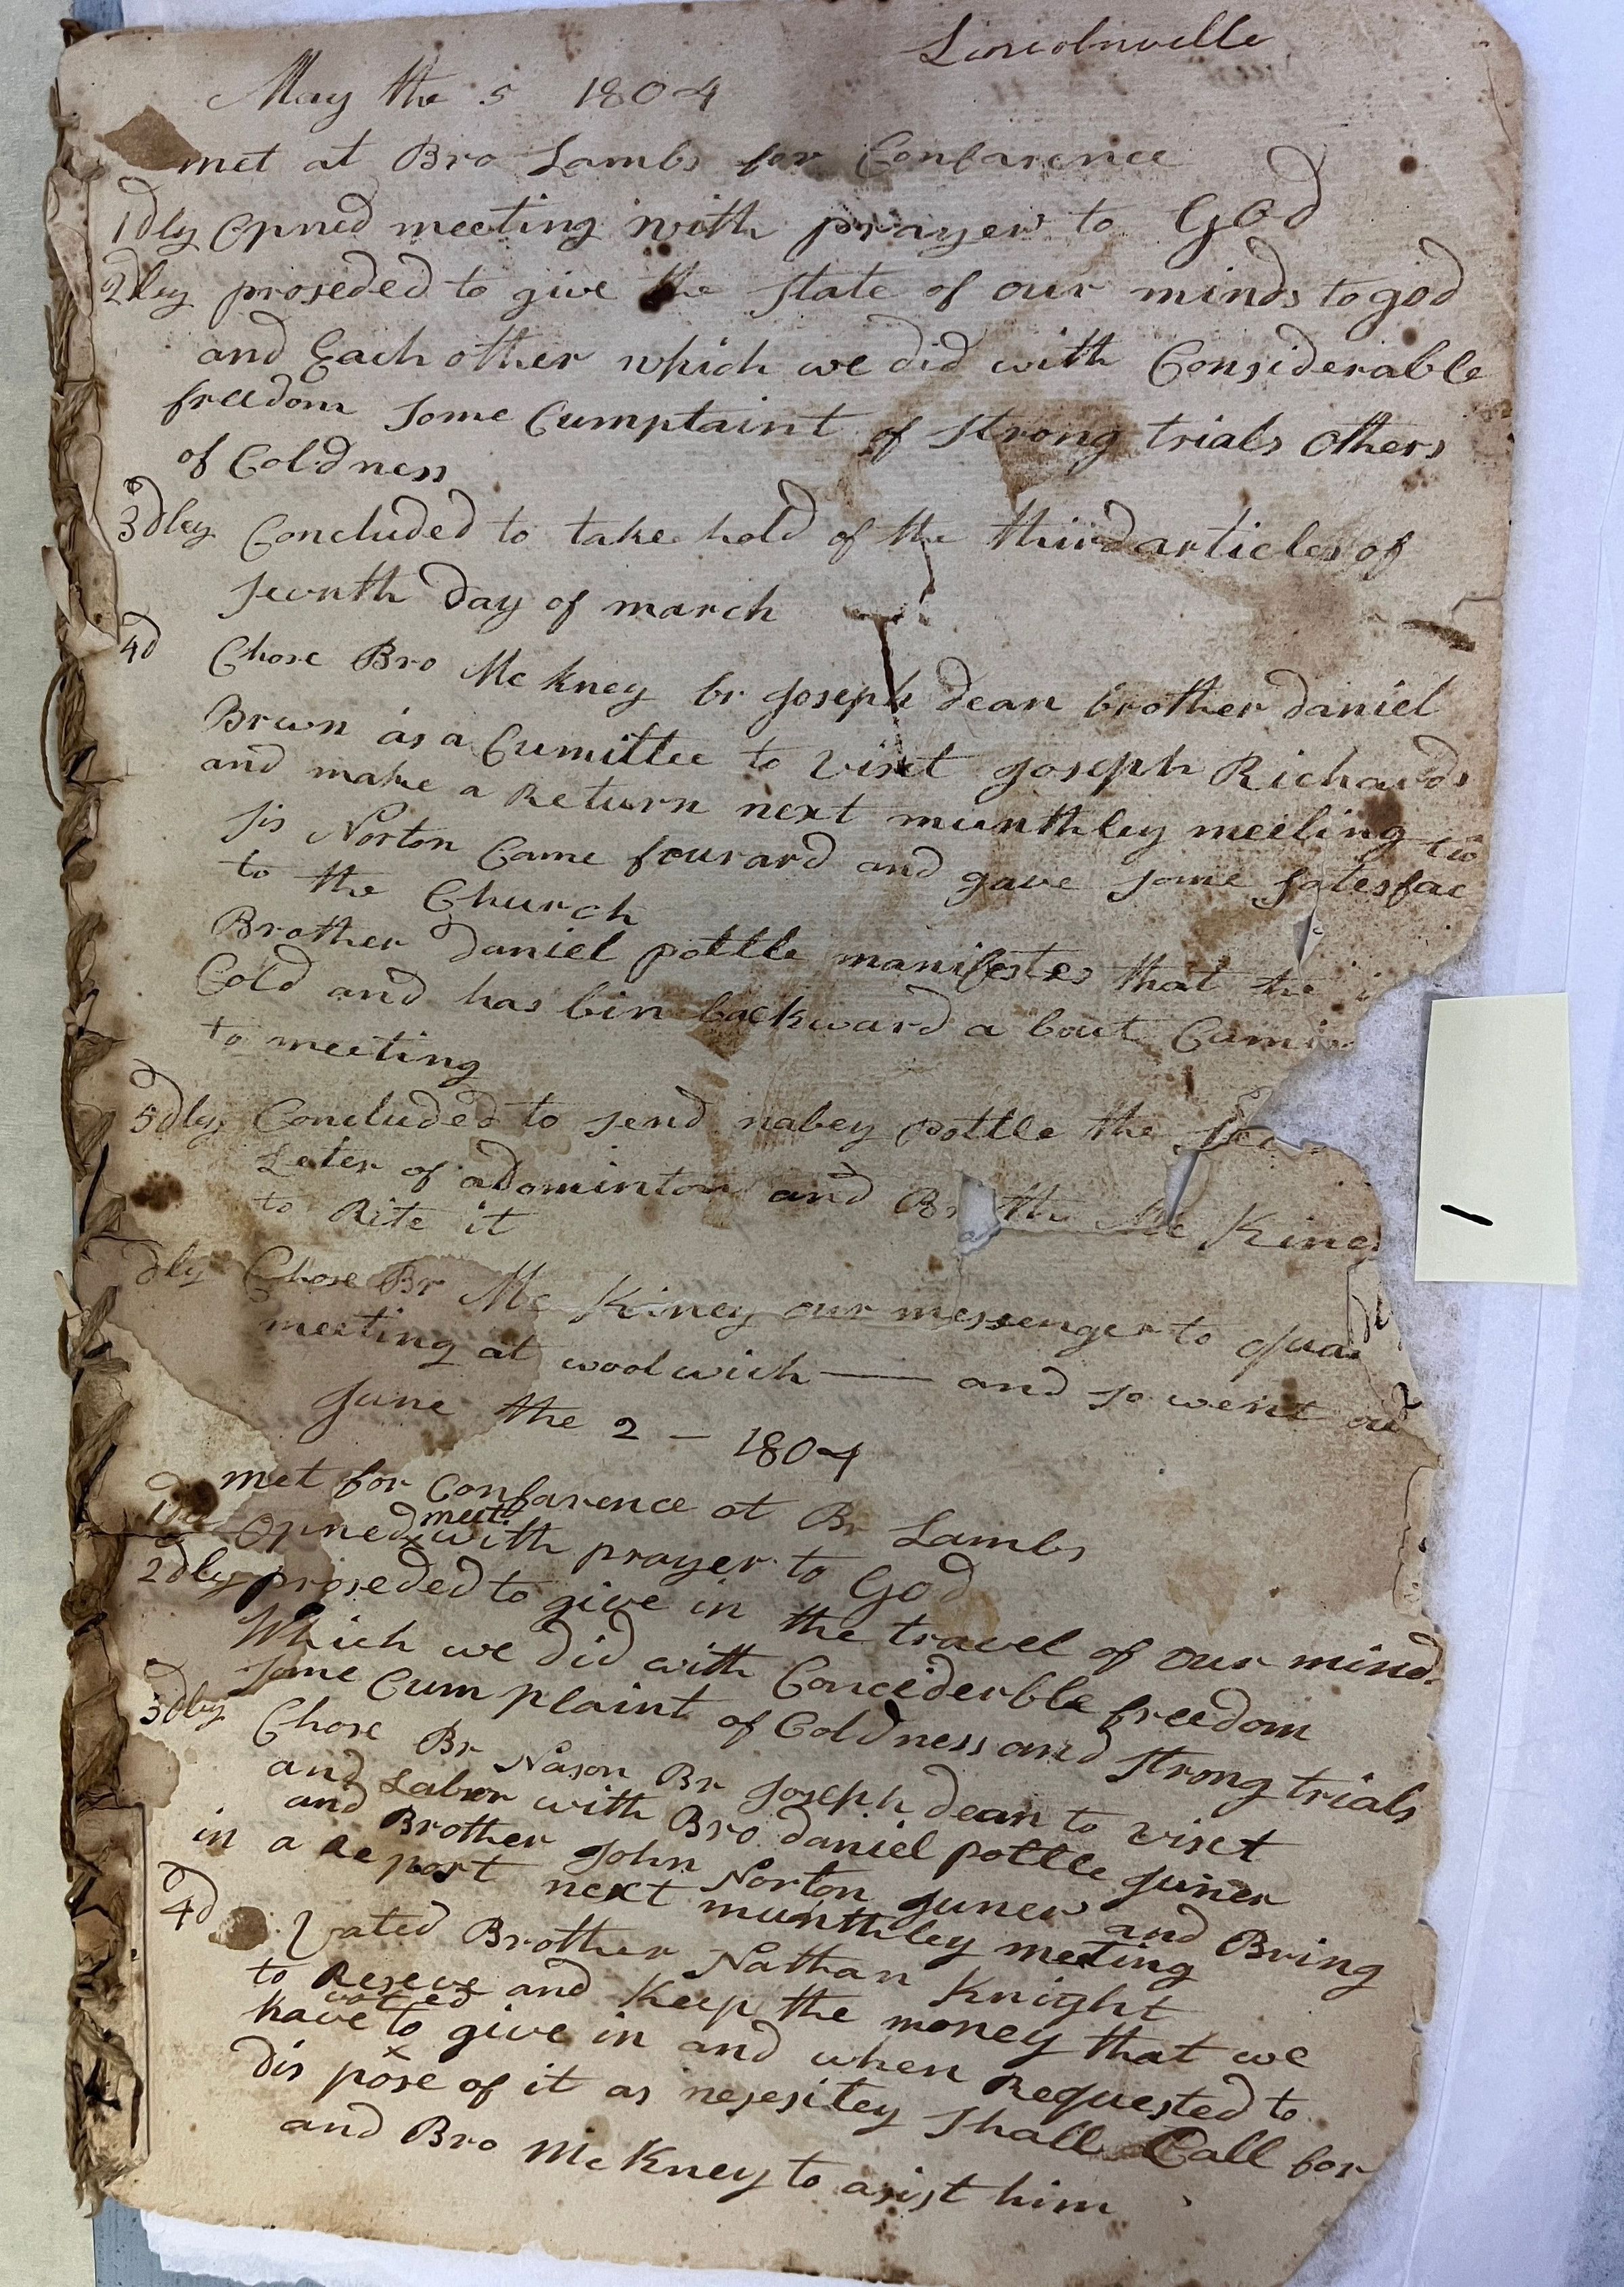 Lincolnville
May the 5 1804
met at Bro Lambs for Confarence
1dly Opned meeting with prayer to God
2dley proseded to give the state of our minds to god
and Each other which we did with Considerable
freedom some Cumptaint of strong trials Others
of Coldness
3dley Concluded to take hold of the third articles of
sevnth day of march
4d Chose Bro Mc Kney br Joseph dean brother daniel
Brwn as a Cumittee to viset Joseph Richards
and make a Return next munthley meeling
Sis Norton Came fourard and gave some satesfac
to the Church
Brother daniel pottle manifestes that
Cold and has bin backward a bout Cumi
to meeting
5dly Concluded to send nabey pottle the
Leter of adominton and the Mc Kine
to Rite it
dly Chose Br Mc Kiney our messenger to qua
meeting at woolwich — and so went
June the 2 - 1804
met for Confarence at Br Lambs
Opned meet with prayer to God
2dly proseded to give in the travel of our mind
Which we did with Concederble freedom
some Cumplaint of Coldness and strong trials
3dly Chose Br Nason Br Joseph dean to viset
and Labor with Bro daniel pottle juner
and Brother John Norton juner and Bring
in a Report next munthley meting
4d Vated Brother Nathan Knight
to Reseve and Keep the money that we
have voted to give in and when Requested to
dis pose of it as nesesitey shall Call for
and Bro Mc Kney to asist him